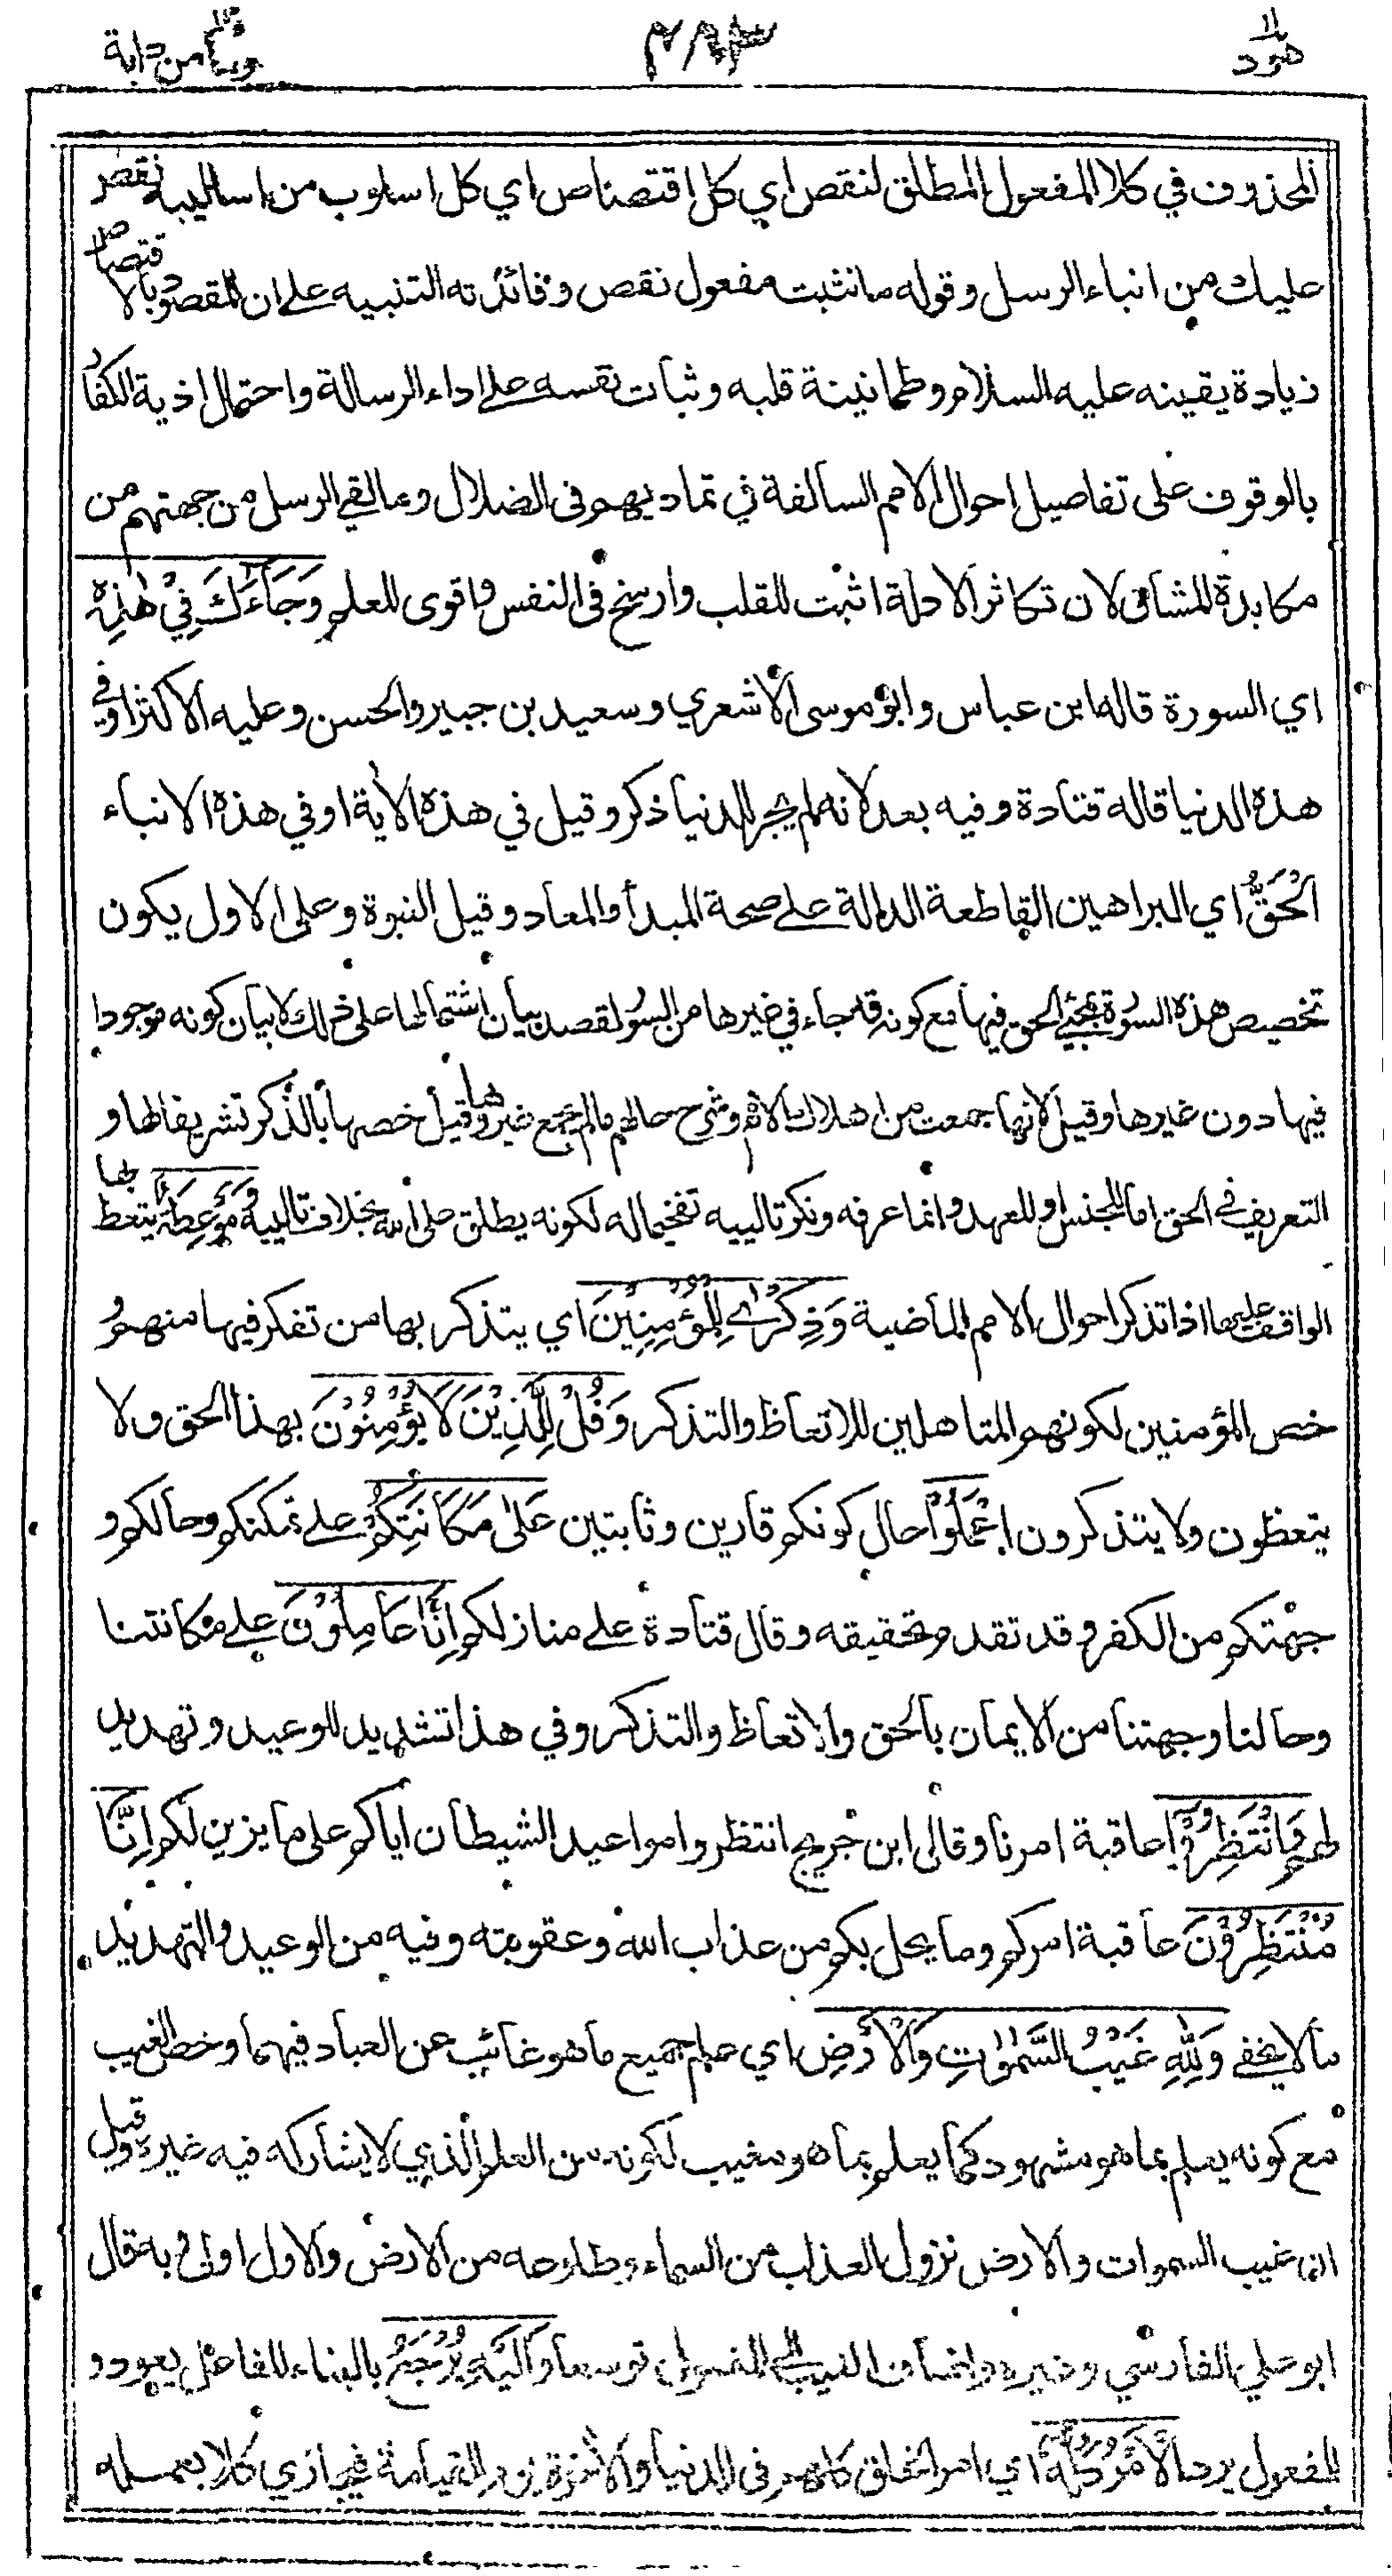 هود
٤٨٣
وما من دابة
المحذوف في كلا المفعول المطلق لنقص اي كل اقتصاص اي كل اسلوب من اساليبه نقص
عليك من انباء الرسل وقوله ما نثبت مفعول نقص وفائدته التنبيه على ان المقصود بالاقتصاص
زيادة يقينه عليه السلام وطمانينة قلبه وثبات نفسه على اداء الرسالة واحتمال اذية الكفار
بالوقوف على تفاصيل احوال الامم السالفة في تماديهم فى الضلال وما لقي الرسل من جهتهم من
مكابدة المشاق لان تكاثر الادلة اثبت للقلب وارسخ فى النفس واقوى للعلم وَجَاءَكَ فِيْ هٰذِهِ
اي السورة قاله ابن عباس وابو موسى الاشعري وسعيد بن جبير والحسن وعليه الاكثر او في
هذه الدنيا قاله قتادة وفيه بعد لانه لم يجر للدنيا ذكر وقيل في هذه الاية او في هذه الانباء
الْحَقُّ اي البراهين القاطعة الدالة على صحة المبدأ والمعاد وقيل النبوة وعلى الاول يكون
تخصيص هذه السورة بمجئ الحق فيها مع كونه قد جاء في غيرها من السور لقصد بيان اشتمالها على ذلك لا بيان كونه موجودا
فيها دون غيرها وقيل لانها جمعت من اهلاك الامم وشرح حالهم ما لم يجمع غيرها وقيل خصها بالذكر تشريفا لها و
التعريف في الحق اما للجنس او للعهد وانما عرفه ونكر تالييه تفخيما له لكونه يطلق على الله بخلاف تالييه وَمَوْعِظَةٌ يتعظ بها
الواقف عليها اذا تذكر احوال الامم الماضية وَذِكْرٰى لِلْمُؤْمِنِيْنَ اي يتذكر بها من تفكر فيها منهم و
خص المؤمنين لكونهم المتاهلين للاتعاظ والتذكر وَقُلْ لِلَّذِيْنَ لَا يُؤْمِنُوْنَ بهذا الحق ولا
يتعظون ولا يتذكرون اعْمَلُوْا حال كونكم قارين وثابتين عَلٰى مَكَانَتِكُمْ على تمكنكم وحالكم و
جهتكم من الكفر وقد تقدم تحقيقه وقال قتادة على منازلكم اِنَّا عَامِلُوْنَ على مكانتنا
وحالنا وجهتنا من الايمان بالحق والاتعاظ والتذكر وفي هذا تشديد للوعيد وتهديد
لهم وَانْتَظِرُوْا عاقبة امرنا وقال ابن جريج انتظروا مواعيد الشيطان اياكم على ما يزين لكم اِنَّا
مُنْتَظِرُوْنَ عاقبة امركم وما يحل بكم من عذاب الله وعقوبته وفيه من الوعيد والتهديد
ما لا يخفى وَلِلّٰهِ غَيْبُ السَّمٰوٰتِ وَالْاَرْضِ اي علم جميع ما هو غائب عن العباد فيهما وخص الغيب
مع كونه يعلم بما هو مشهود كما يعلم بما هو مغيب لكونه من العلم الذي لا يشاركه فيه غيره وقيل
ان غيب السموات والارض نزول العذاب من السماء وطلوعه من الارض والاول اولى وبه قال
ابو علي الفارسي وغيره واضاف الغيب الى المفعول توسعا وَاِلَيْهِ يُرْجَعُ بالبناء للفاعل يعود و
للمفعول يرد الْاَمْرُ كُلُّهُ اي امر الخلق كلهم فى الدنيا والاخرة يوم القيامة فيجازي كلا بعمله